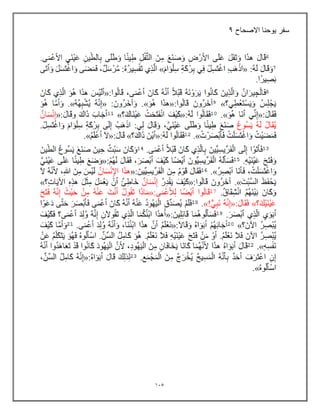 سفر يوحنا الاصحاح ٩
٦قَالَ هذَا وَتَفَلَ عَلَى الأَرْضِ وَصَنَعَ مِنَ التُّفْلِ طِينًا وَطَلَى بِالطِّينِ عَيْنَيِ الأَعْمَى.
٧وَقَالَ لَهُ: «اذْهَبِ اغْتَسِلْ فِي بِرْكَةِ سِلْوَامَ» الَّذِي تَفْسِيرُهُ: مُرْسَلٌ، فَمَضَى وَاغْتَسَلَ وَأَتَى
بَصِيرًا.
٨فَالْجِيرَانُ وَالَّذِينَ كَانُوا يَرَوْنَهُ قَبْلاً أَنَّهُ كَانَ أَعْمَى، قَالُوا:«أَلَيْسَ هذَا هُوَ الَّذِي كَانَ
يَجْلِسُ وَيَسْتَعْطِي؟» ٩آخَرُونَ قَالُوا:«هذَا هُوَ». وَآخَرُونَ: «إِنَّهُ يُشْبِهُهُ». وَأَمَّا هُوَ
فَقَالَ:«إِنِّي أَنَا هُوَ». ١٠فَقَالُوا لَهُ:«كَيْفَ انْفَتَحَتْ عَيْنَاكَ؟» ١١أَجَابَ ذَاكَ وقَالَ:«إِنْسَانٌ
يُقَالُ لَهُ يَسُوعُ صَنَعَ طِينًا وَطَلَى عَيْنَيَّ، وَقَالَ لِي: اذْهَبْ إِلَى بِرْكَةِ سِلْوَامَ وَاغْتَسِلْ.
فَمَضَيْتُ وَاغْتَسَلْتُ فَأَبْصَرْتُ». ١٢فَقَالُوا لَهُ: «أَيْنَ ذَاكَ؟» قَالَ: «لاَ أَعْلَمُ».
١٣فَأَتَوْا إِلَى الْفَرِّيسِيِّينَ بِالَّذِي كَانَ قَبْلاً أَعْمَى. ١٤وَكَانَ سَبْتٌ حِينَ صَنَعَ يَسُوعُ الطِّينَ
وَفَتَحَ عَيْنَيْهِ. ١٥فَسَأَلَهُ الْفَرِّيسِيُّونَ أَيْضًا كَيْفَ أَبْصَرَ، فَقَالَ لَهُمْ:«وَضَعَ طِينًا عَلَى عَيْنَيَّ
وَاغْتَسَلْتُ، فَأَنَا أُبْصِرُ». ١٦فَقَالَ قَوْمٌ مِنَ الْفَرِّيسِيِّينَ:«هذَا الإِنْسَانُ لَيْسَ مِنَ اللهِ، لأَنَّهُ لاَ
يَحْفَظُ السَّبْتَ». آخَرُونَ قَالُوا:«كَيْفَ يَقْدِرُ إِنْسَانٌ خَاطِئٌ أَنْ يَعْمَلَ مِثْلَ هذِهِ الآيَاتِ؟»
وَكَانَ بَيْنَهُمُ انْشِقَاقٌ. ١٧قَالُوا أَيْضًا لِلأَعْمَى:«مَاذَا تَقُولُ أَنْتَ عَنْهُ مِنْ حَيْثُ إِنَّهُ فَتَحَ
عَيْنَيْكَ؟» فَقَالَ:«إِنَّهُ نَبِيٌّ!». ١٨فَلَمْ يُصَدِّقِ الْيَهُودُ عَنْهُ أَنَّهُ كَانَ أَعْمَى فَأَبْصَرَ حَتَّى دَعَوْا
أَبَوَيِ الَّذِي أَبْصَرَ. ١٩فَسَأَلُوهُمَا قَائِلِينَ:«أَهذَا ابْنُكُمَا الَّذِي تَقُولاَنِ إِنَّهُ وُلِدَ أَعْمَى؟ فَكَيْفَ
يُبْصِرُ الآنَ؟» ٢٠أَجَابَهُمْ أَبَوَاهُ وَقَالاَ:«نَعْلَمُ أَنَّ هذَا ابْنُنَا، وَأَنَّهُ وُلِدَ أَعْمَى. ٢١وَأَمَّا كَيْفَ
يُبْصِرُ الآنَ فَلاَ نَعْلَمُ. أَوْ مَنْ فَتَحَ عَيْنَيْهِ فَلاَ نَعْلَمُ. هُوَ كَامِلُ السِّنِّ. اسْأَلُوهُ فَهُوَ يَتَكَلَّمُ عَنْ
نَفْسِهِ». ٢٢قَالَ أَبَوَاهُ هذَا لأَنَّهُمَا كَانَا يَخَافَانِ مِنَ الْيَهُودِ، لأَنَّ الْيَهُودَ كَانُوا قَدْ تَعَاهَدُوا أَنَّهُ
إِنِ اعْتَرَفَ أَحَدٌ بِأَنَّهُ الْمَسِيحُ يُخْرَجُ مِنَ الْمَجْمَعِ. ٢٣لِذلِكَ قَالَ أَبَوَاهُ:«إِنَّهُ كَامِلُ السِّنِّ،
اسْأَلُوهُ».
١٠٥